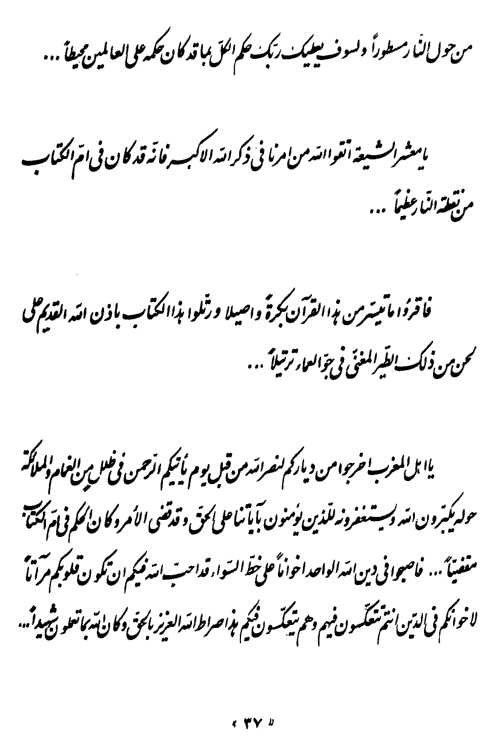 من حول النّار مسطوراً ولسوف يعطيك ربّك حكم الكلّ بما قد كان حكمه على العالمين محيطاً ...
يا معشر الشيعة اتقوا الله من امرنا فى ذكر الله الاكبر فانّه قد كان فى امّ الكتاب
من نقطة النّار عظيماً ...
فاقرؤا ما تيسّر من هذا القرآن بكرةً واصيلا ورتّلوا هذا الكتاب باذن الله القديم على
لحن من ذلك الطّير المغنّى فى جوّ العماء ترتيلاً ...
يا اهل المغرب اخرجوا من دياركم لنصر الله من قبل يوم يأتيكم الرّحمن فى ظلل من الغمام والملائكة
حوله يكبّرون الله ويستغفرونه للّذين يؤمنون بآياتنا على الحقّ وقد قضى الأمر وكان الحكم فى امّ الكتاب
مقضيّاً ... فاصبحوا فى دين الله الواحد اخواناً على خطّ السّواء قد احبّ الله فيكم ان تكون قلوبكم مرآتاً
لاخوانكم فى الدّين انتم تنعكسون فيهم وهم يتعكّسون فيكم هذا صراط الله العزيز بالحقّ وكان الله بما تعملون شهيداً ...
« ۳۷ »